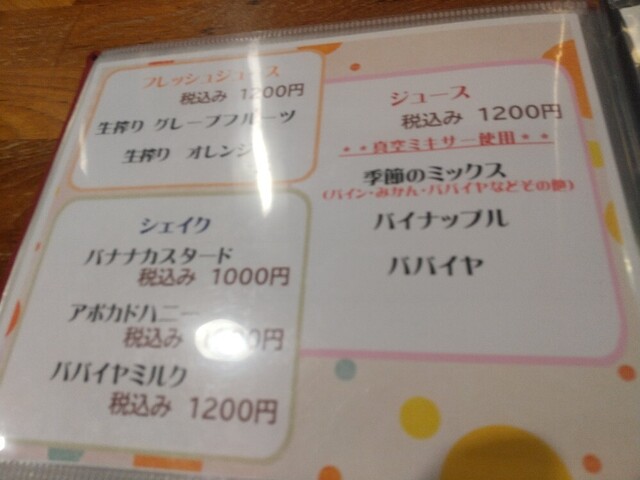 フレッシュジュース
税込み 1200円
生搾り グレープフルーツ
生搾り オレンジ
シェイク
バナナカスタード
税込み 1000円
アボカドハニー
税込み 00円
パパイヤミルク
税込み 1200円
ジュース
税込み 1200円
**真空ミキサー使用**
季節のミックス
(パイン・みかん・パパイヤなどその他)
パイナップル
パパイヤ